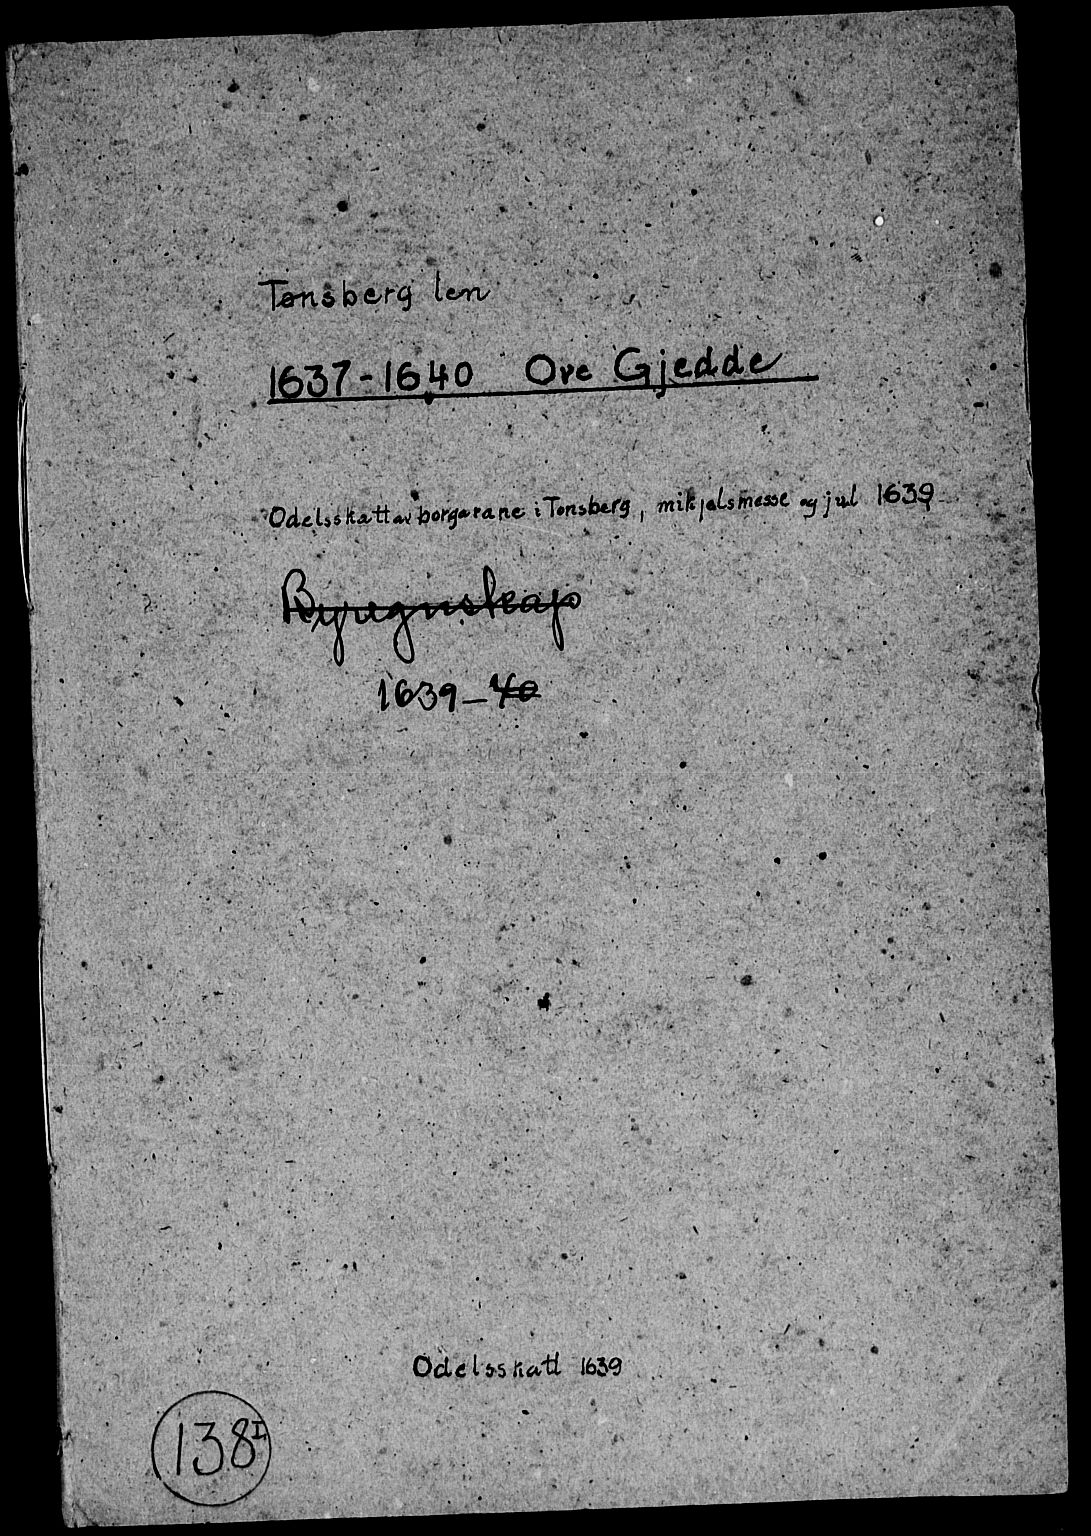 Tønsberg len
1637-1640 Ove Gjedde
Odelsskatt av borgarane i Tønsberg, mikjalsmesse og jul 1639
Byregnskap
1639-40
Odelsskatt 1639
138 I